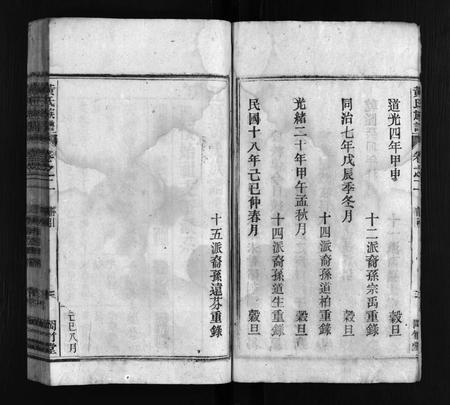 道光四年甲申
穀旦
十二派裔孫宗禹重錄
同治七年戊辰季冬月
穀旦
十四派裔孫道柏重錄
光緒二十年甲午孟秋月
穀旦
十四派裔孫道生重錄
民國十八年己巳仲春月
十五派裔孫遠芬重錄
黃氏族譜
卷之二
己巳八月